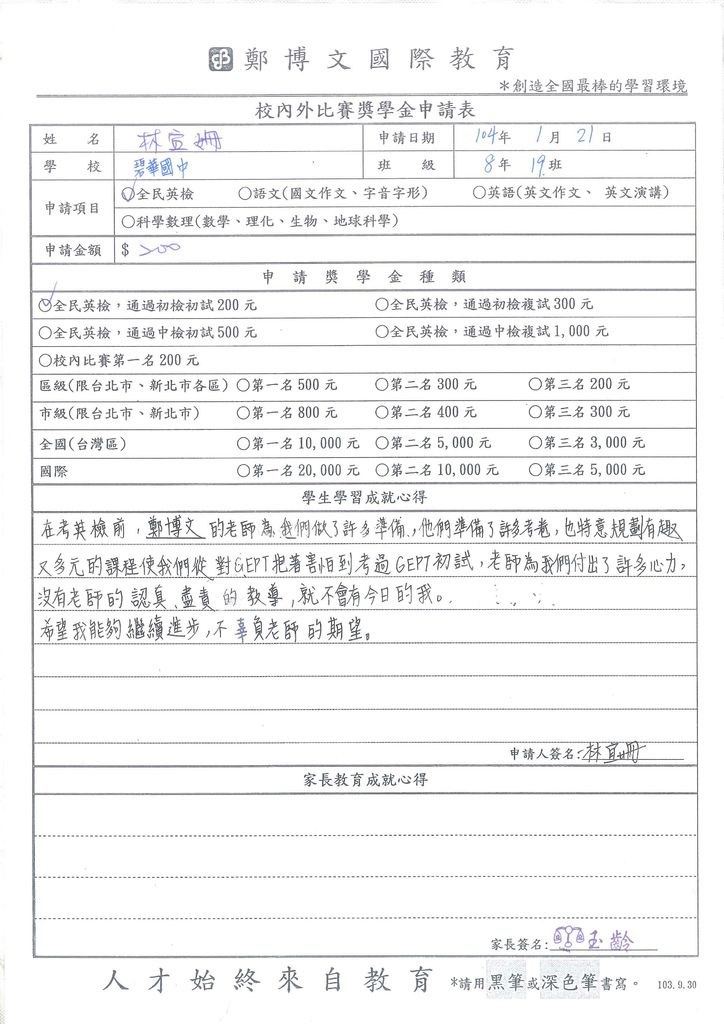 鄭博文國際教育
＊創造全國最棒的學習環境
校內外比賽獎學金申請表
姓名 林宜姍 申請日期 104年 1月 21日
學校 碧華國中 班級 8年 19班
申請項目 ○全民英檢 ○語文(國文作文、字音字形) ○英語(英文作文、 英文演講)
○科學數理(數學、理化、生物、地球科學)
申請金額 $ 200
申請獎學金種類
○全民英檢，通過初檢初試200元 ○全民英檢，通過初檢複試300元
○全民英檢，通過中檢初試500元 ○全民英檢，通過中檢複試1,000元
○校內比賽第一名200元
區級(限台北市、新北市各區) ○第一名500元 ○第二名300元 ○第三名200元
市級(限台北市、新北市) ○第一名800元 ○第二名400元 ○第三名300元
全國(台灣區) ○第一名10,000元 ○第二名5,000元 ○第三名3,000元
國際 ○第一名20,000元 ○第二名10,000元 ○第三名5,000元
學生學習成就心得
在考英檢前，鄭博文的老師為我們做了許多準備，他們準備了許多考卷，也特意規劃有趣
又多元的課程使我們從對GEPT抱著害怕到考過GEPT初試，老師為我們付出了許多心力，
沒有老師的認真、盡責的教導，就不會有今日的我。
希望我能夠繼續進步，不辜負老師的期望。
申請人簽名：林宜姍
家長教育成就心得
家長簽名：玉齡
人才始終來自教育 *請用黑筆或深色筆書寫。 103.9.30